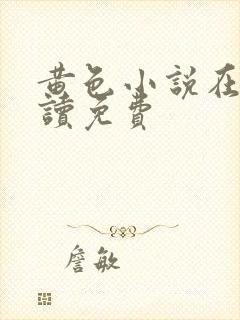 黃色小說在
讀免費
詹敏